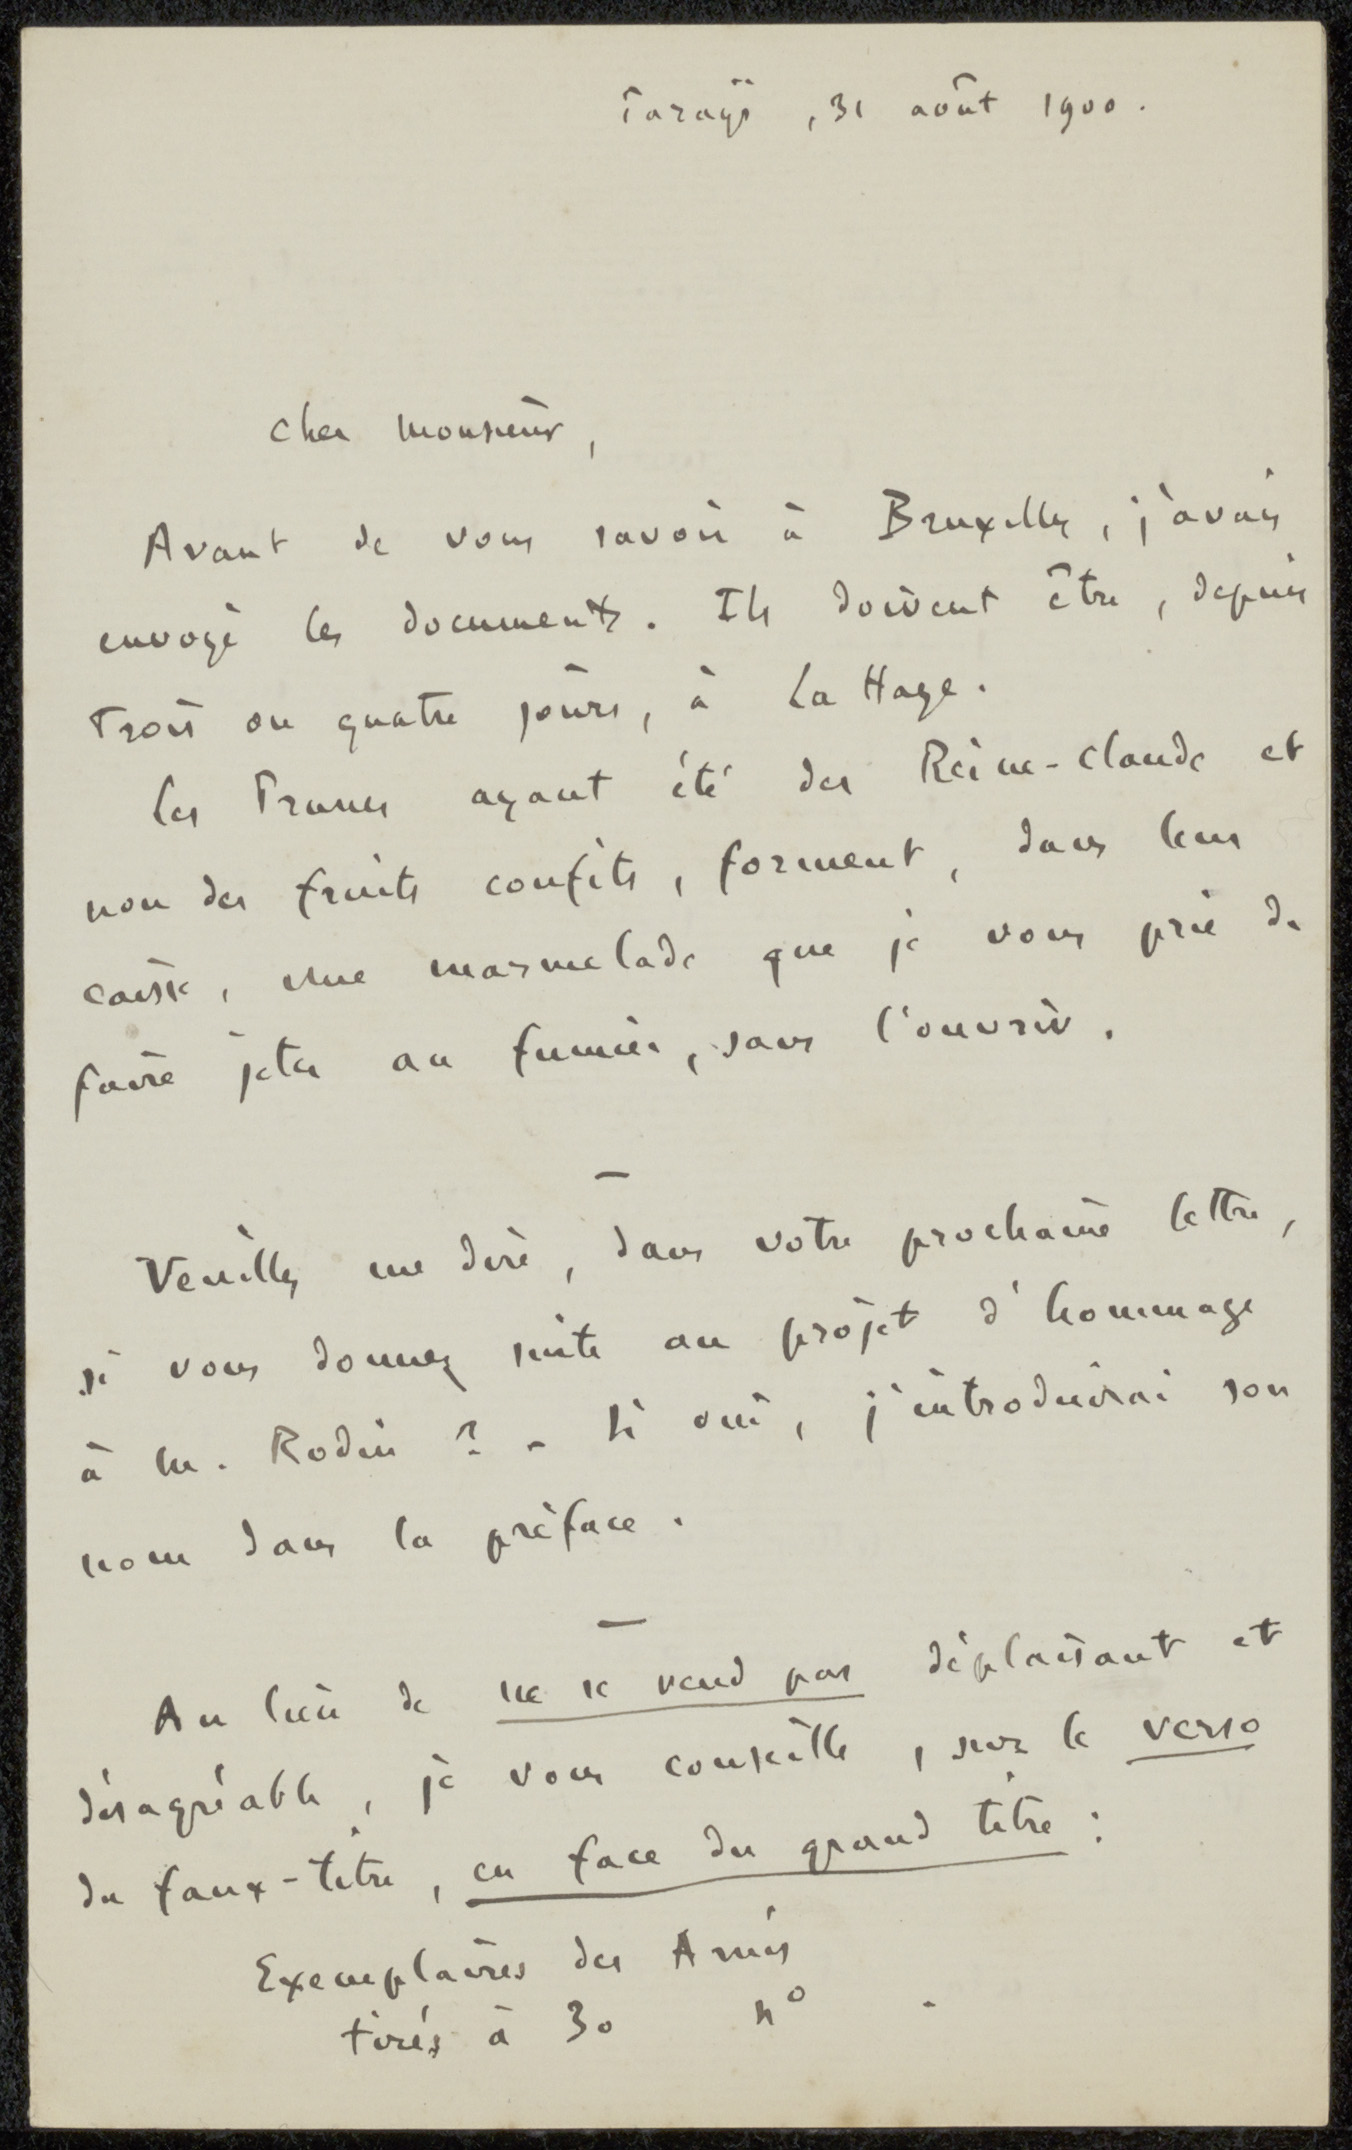 Tarays, 31 août 1900.
Cher Monsieur,
Avant de vous savoir à Bruxelles, j'avais
envoyé les documents. Ils doivent être, depuis
trois ou quatre jours, à La Haye.
Les Prunes ayant été des Reine-Claude et
non des fruits confits, forment, dans leur
caisse, une marmelade que je vous prie de
faire jeter au fumier, sans l'ouvrir.
—
Veuillez me dire, dans votre prochaine lettre,
si vous donnez suite au projet d'hommage
à M. Rodin ? - Si oui, j'introduirai son
nom dans la préface.
—
Au lieu de ne se vend pas déplaisant et
désagréable, je vous conseille, sur le verso
du faux-titre, en face du grand titre :
Exemplaires des Amis
tirés à 30 n° .